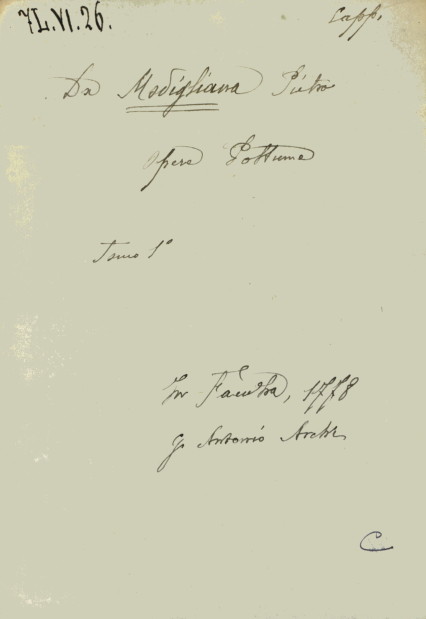 7L.VI.26.
Capp.
Da Modigliana Pietro
Opere Postume
Tomo 1º
In Faenza, 1778
Antonio Archi
C